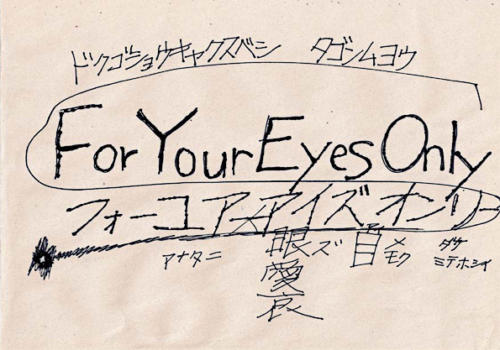 ドクゴショウキャクスベシ タゴシムヨウ
For Your Eyes Only
フォーユアアイズオンリー
アナタニ 眼ズ 首 メ モク ダケ
愛 ミテホシイ
哀